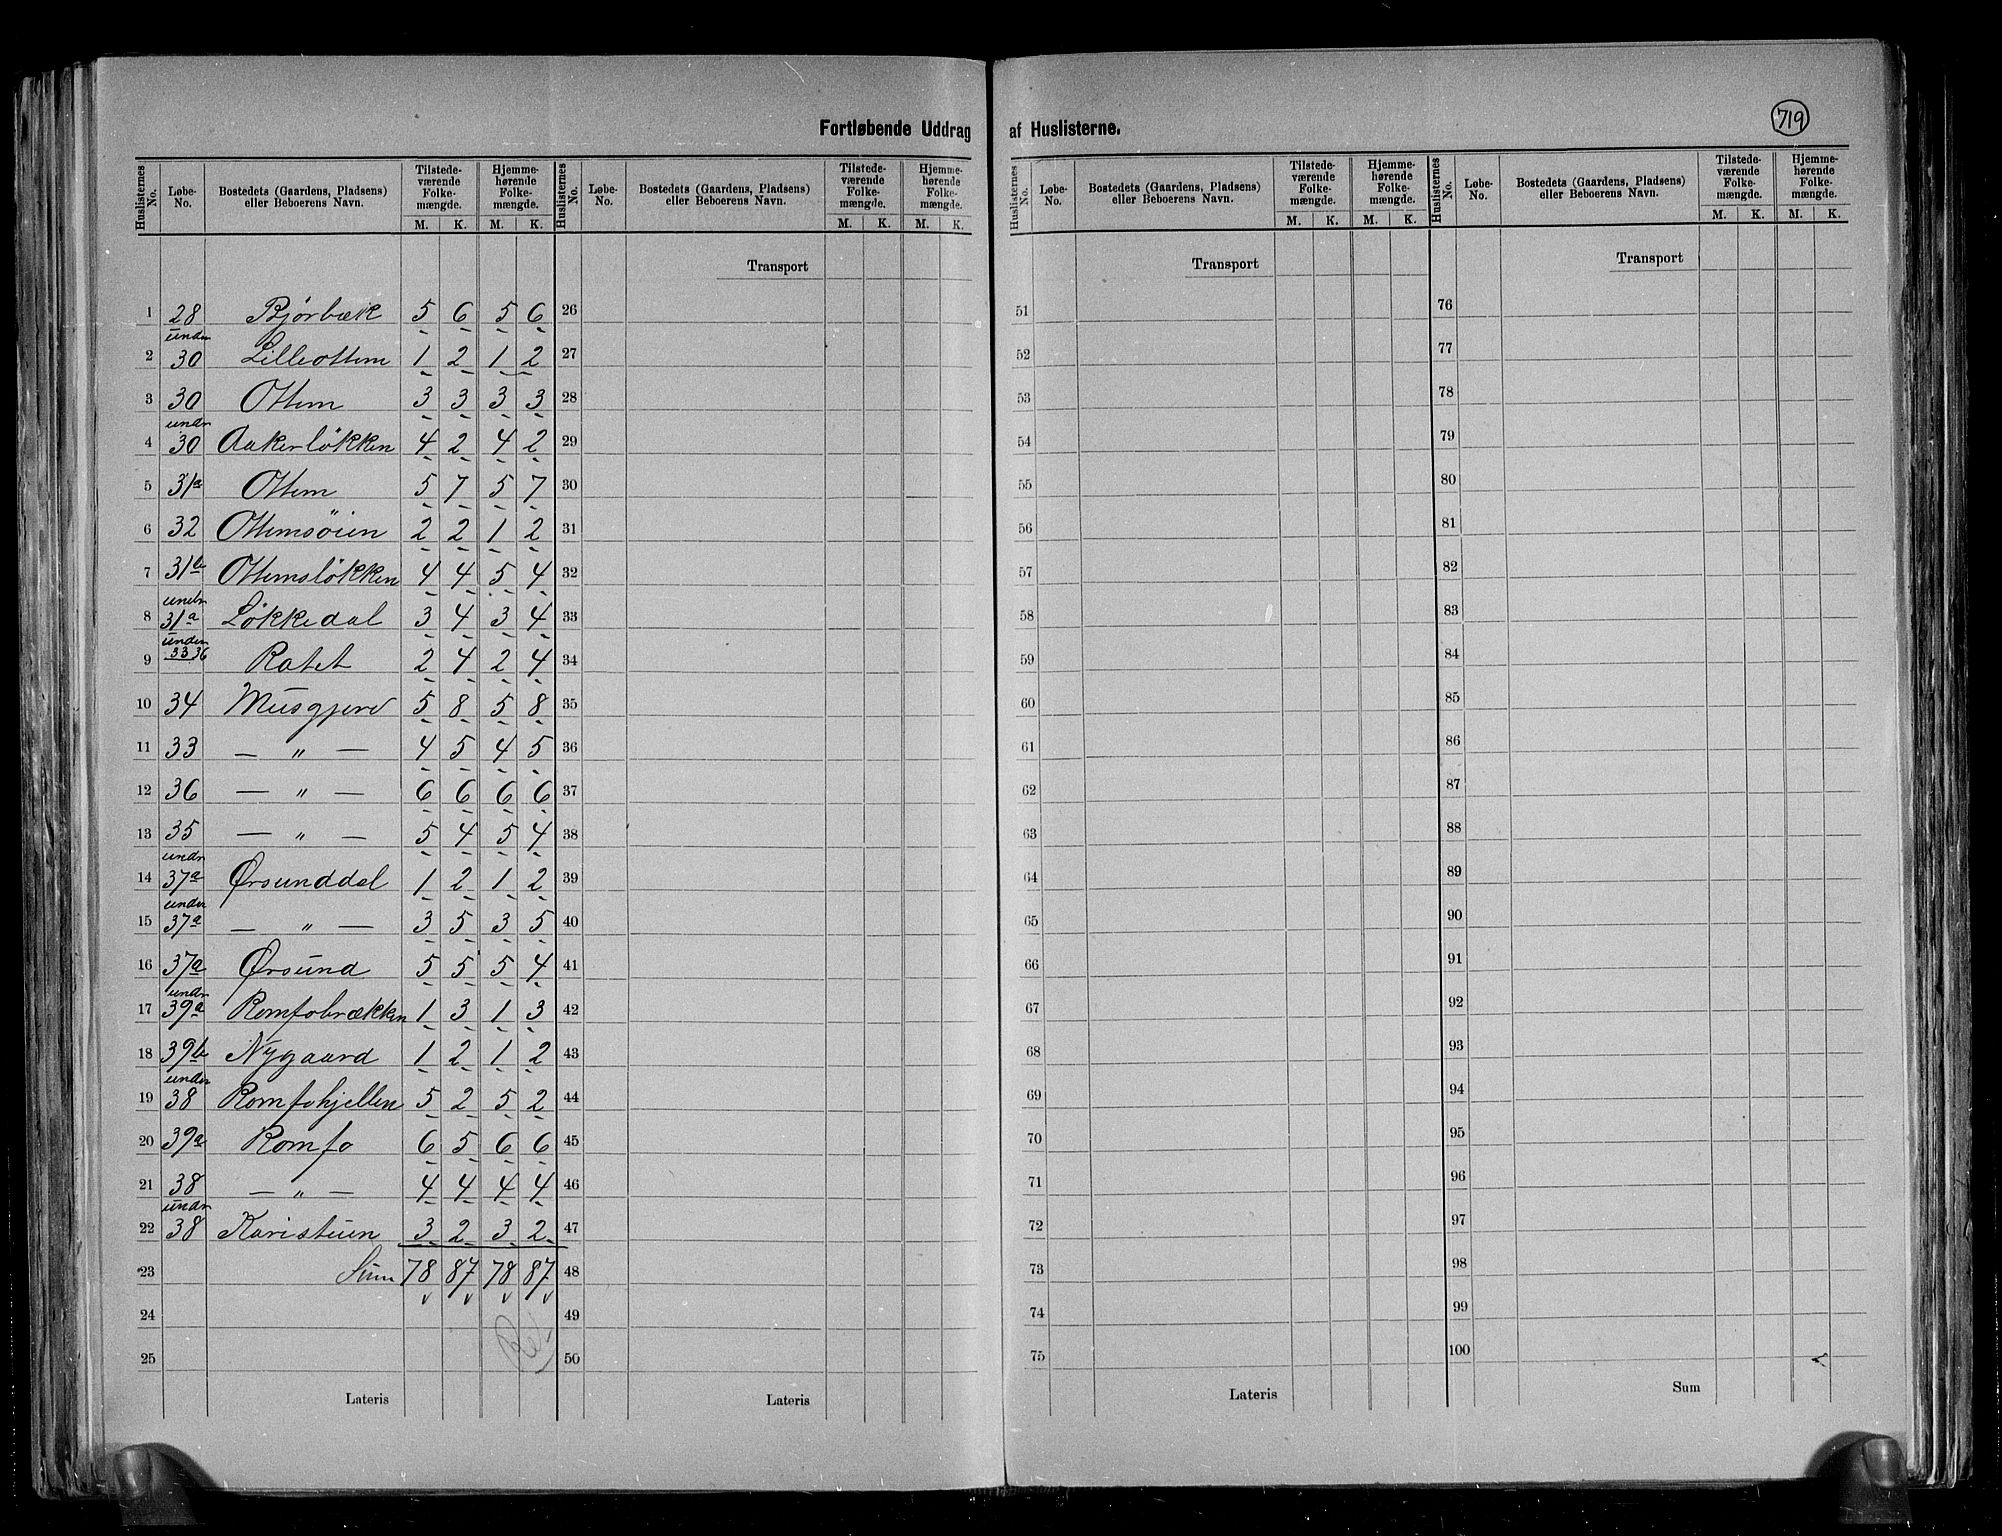 Fortløbende Uddrag af Huslisterne.
719
Huslisternes No. | Løbe-No. | Bostedets (Gaardens, Pladsens) eller Beboerens Navn. | Tilstede-værende Folke-mængde. M. K. | Hjemme-hørende Folke-mængde. M. K.
Huslisternes No. | Løbe-No. | Bostedets (Gaardens, Pladsens) eller Beboerens Navn. | Tilstede-værende Folke-mængde. M. K. | Hjemme-hørende Folke-mængde. M. K.
Huslisternes No. | Løbe-No. | Bostedets (Gaardens, Pladsens) eller Beboerens Navn. | Tilstede-værende Folke-mængde. M. K. | Hjemme-hørende Folke-mængde. M. K.
Huslisternes No. | Løbe-No. | Bostedets (Gaardens, Pladsens) eller Beboerens Navn. | Tilstede-værende Folke-mængde. M. K. | Hjemme-hørende Folke-mængde. M. K.
Transport Transport Transport
1 28 Bjørbæk 5 6 5 6 26 51 76
2 under 30 Lilleottem 1 2 1 2 27 52 77
3 30 Ottem 3 3 3 3 28 53 78
4 under 30 Aakerløkken 4 2 4 2 29 54 79
5 31a Ottem 5 7 5 7 30 55 80
6 32 Ottemsöien 2 2 1 2 31 56 81
7 31b Ottemsløkken 4 4 5 4 32 57 82
8 under 31a Løkkedal 3 4 3 4 33 58 83
9 under 33 36 Ratet 2 4 2 4 34 59 84
10 34 Musgjerd 5 8 5 8 35 60 85
11 33 — " — 4 5 4 5 36 61 86
12 36 — " — 6 6 6 6 37 62 87
13 35 — " — 5 4 5 4 38 63 88
14 under 37a Ørsunddal 1 2 1 2 39 64 89
15 under 37a — " — 3 5 3 5 40 65 90
16 37a Ørsund 5 5 5 4 41 66 91
17 under 39a Romfobrækken 1 3 1 3 42 67 92
18 39b Nygaard 1 2 1 2 43 68 93
19 under 38 Romfohjellen 5 2 5 2 44 69 94
20 39a Romfo 6 5 6 6 45 70 95
21 38 — " — 4 4 4 4 46 71 96
22 under 38 Karistuen 3 2 3 2 47 72 97
23 Sum 78 87 78 87 48 73 98
24 49 74 99
25 50 75 100
Lateris Lateris Lateris Sum